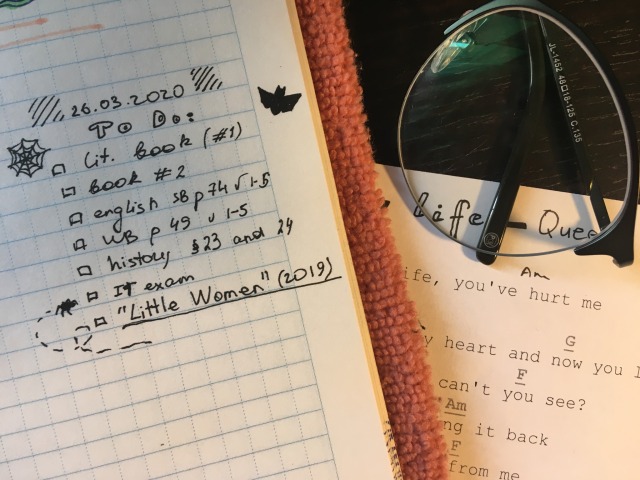 26.03.2020
To Do:
Lit. book (#1)
book #2
english SB p 74 √ 1-5
WB p 49 √ 1-5
history §23 and 24
IT exam
"Little Women" (2019)
JL-1452 48□18-125 C.135
Life – Quee
Am
ife, you've hurt me
G
y heart and now you l
F
can't you see?
Am
ng it back
F
from me